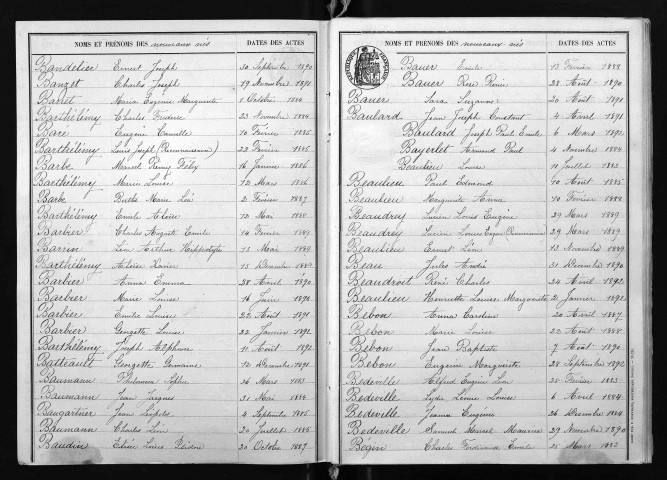 NOMS ET PRÉNOMS DES nouveaux nés DATES DES ACTES
Bandelier Ernest Joseph 30 Septembre 1890
Banzet Charles Joseph 19 Novembre 1891
Barret Marie Eugénie Marguerite 1 Octobre 1884
Barthélémy Charles 23 Novembre 1884
Baré Eugène Camille 10 Février 1885
Barthélémy Louis Joseph (Reconnaissance) 22 Février 1885
Barbe Marcel Rémy Félix 16 Janvier 1886
Barthélémy Marie Louise 12 Mars 1886
Barbe Berthe Marie 2 Février 1887
Barthélémy Emile 12 Mai 1888
Barbier Charles Auguste Emile 14 Février 1889
Barron Léon Arthur Hippolyte 13 Mai 1889
Barthélémy Xavier 15 Décembre 1889
Barbier Anna Emma 28 Avril 1890
Barbier Marie Louise 16 Juin 1891
Barbier Emilie Louise 22 Août 1891
Barbier Georgette Louise 22 Janvier 1892
Barthélémy Joseph Alphonse 11 Août 1892
Batteault Georgette Germaine 12 Décembre 1891
Baumann Philomène 26 Mars 1883
Baumann Jean Jacques 31 Mai 1884
Baugartner Jean Léopold 4 Septembre 1885
Baumann Charles Léon 20 Juillet 1885
Baudin Louis 30 Octobre 1887
NOMS ET PRÉNOMS DES nouveaux nés DATES DES ACTES
RÉPUBLIQUE FRANÇAISE
Bauer Emile 13 Février 1888
Bauer René 28 Août 1890
Bauer Sara Suzanne 20 Août 1891
Baulard Jean Joseph Constant 4 Avril 1891
Baulard Joseph Paul Emile 6 Mars 1892
Bayerlet Armand Paul 4 Novembre 1884
Beaulieu Louise 11 Juillet 1883
Beaulieu Paul Edmond 10 Août 1885
Beaulieu Marguerite Anna 10 Février 1888
Beaudrey Lucien Louis Eugène 29 Mars 1889
Beaudrey Lucien Louis Eugène (Reconnaissance) 29 Mars 1889
Beaulieu Ernest Léon 13 Novembre 1889
Beau Jules André 31 Décembre 1890
Beaudroit René Charles 24 Avril 1892
Beaulieu Henriette Louise Marguerite 2 Janvier 1892
Bebon Anna Caroline 20 Avril 1887
Bebon Marie Louise 22 Août 1888
Bebon Jean Baptiste 7 Août 1890
Bebon Eugénie Marguerite 28 Septembre 1892
Bedeville Alfred Eugène Léon 25 Février 1883
Bedeville Lydie Louise 6 Avril 1884
Bedeville Jeanne Eugénie 26 Décembre 1884
Bedeville Samuel Marcel Maurice 29 Novembre 1890
Bégin Charles Ferdinand Emile 25 Mars 1883